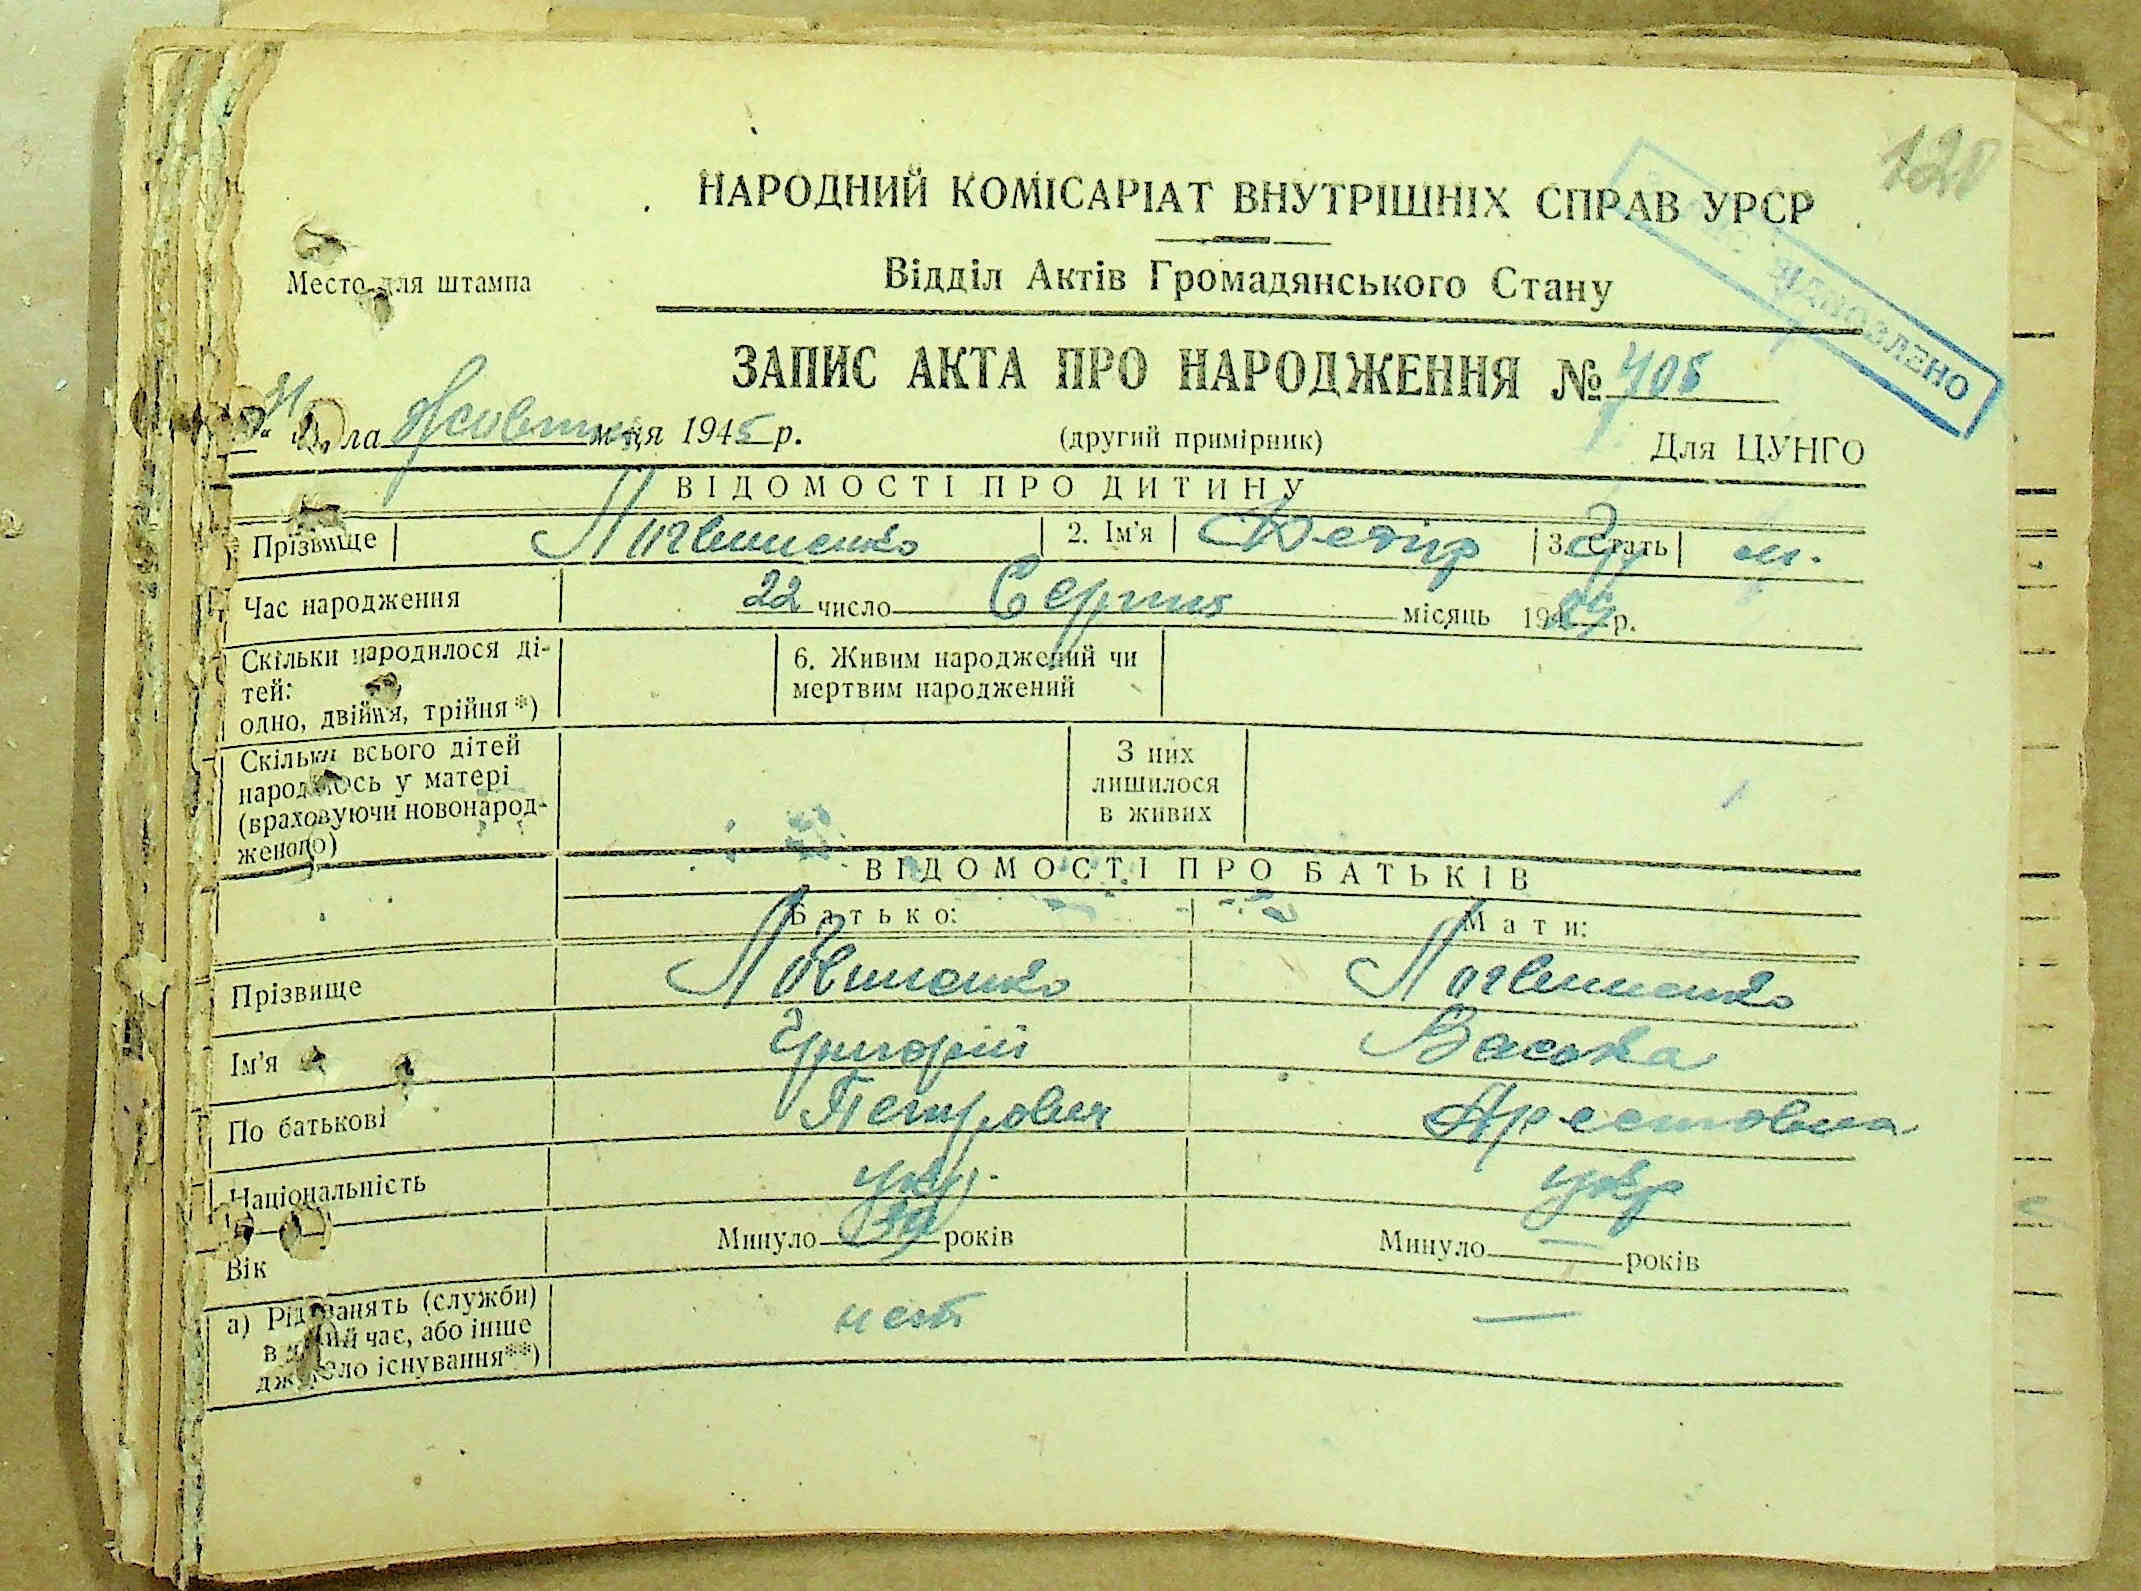 128
НАРОДНИЙ КОМІСАРІАТ ВНУТРІШНІХ СПРАВ УРСР
Место для штампа
Відділ Актів Громадянського Стану
ВІДНОВЛЕНО
ЗАПИС АКТА ПРО НАРОДЖЕННЯ № 708
31 жовтня м-ця 1945 р.
(другий примірник)
Для ЦУНГО
ВІДОМОСТІ ПРО ДИТИНУ
Прізвище Логвиненко 2. Ім'я Федір 3. Стать м.
Час народження 22 число Серпня місяць 19 р.
Скільки народилося ді-
тей:
одно, двійня, трійня*)
6. Живим народжений чи
мертвим народжений
Скільки всього дітей
народилось у матері
(враховуючи новонарод-
женого)
З них
лишилося
в живих
ВІДОМОСТІ ПРО БАТЬКІВ
Батько: Мати:
Прізвище Логвиненко Логвиненко
Ім'я Григорій Васса
По батькові Петрович Арестовна
Національність укр. укр
Вік Минуло 39 років Минуло — років
а) Рід занять (служби)
в даний час, або інше
джерело існування**)
—